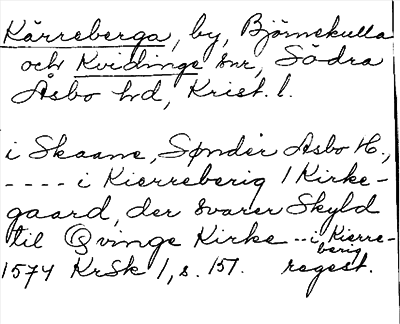 Kärreberga, by, Björnekulla
och Kvidinge snr, Södra
Åsbo hd, Krist. l.
i Skaane, Sønder Asbo H.,
---- i Kierreberig 1 Kirke-
gaard, der svarer Skyld
til Qvinge Kirke -- i Kierre-
berig
1574 KrSk 1, s. 151. regest.